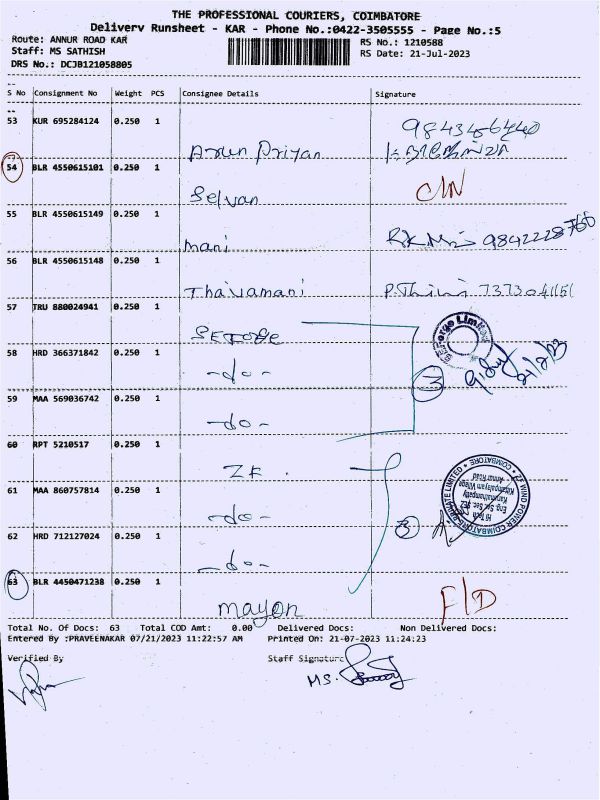 THE PROFESSIONAL COURIERS, COIMBATORE
Delivery Runsheet - KAR - Phone No.:0422-3505555 - Page No.:5
Route: ANNUR ROAD KAR
RS No.: 1210588
Staff: MS SATHISH
RS Date: 21-Jul-2023
DRS No.: DCJB121058805
S No Consignment No Weight PCS Consignee Details Signature
53 KUR 695284124 0.250 1
Arun Priyan
9843456440
54 BLR 4550615101 0.250 1
Selvan
C/N
55 BLR 4550615149 0.250 1
mani
9842228760
56 BLR 4550615148 0.250 1
Thaivamani
7373041151
57 TRU 880024941 0.250 1
SEForge
SEForge Limited
58 HRD 366371842 0.250 1
-do-
3
21/7/23
59 MAA 569036742 0.250 1
-do-
60 RPT 5210517 0.250 1
ZF.
61 MAA 860757814 0.250 1
-do-
ZF WIND POWER COIMBATORE PRIVATE LIMITED
Hi Tech
Eng. Sec. SEZ
Annur Road
62 HRD 712127024 0.250 1
-do-
3
63 BLR 4450471238 0.250 1
mayon
F/D
Total No. Of Docs: 63 Total COD Amt: 0.00 Delivered Docs: Non Delivered Docs:
Entered By :PRAVEENAKAR 07/21/2023 11:22:57 AM Printed On: 21-07-2023 11:24:23
Verified By
Staff Signature
MS.